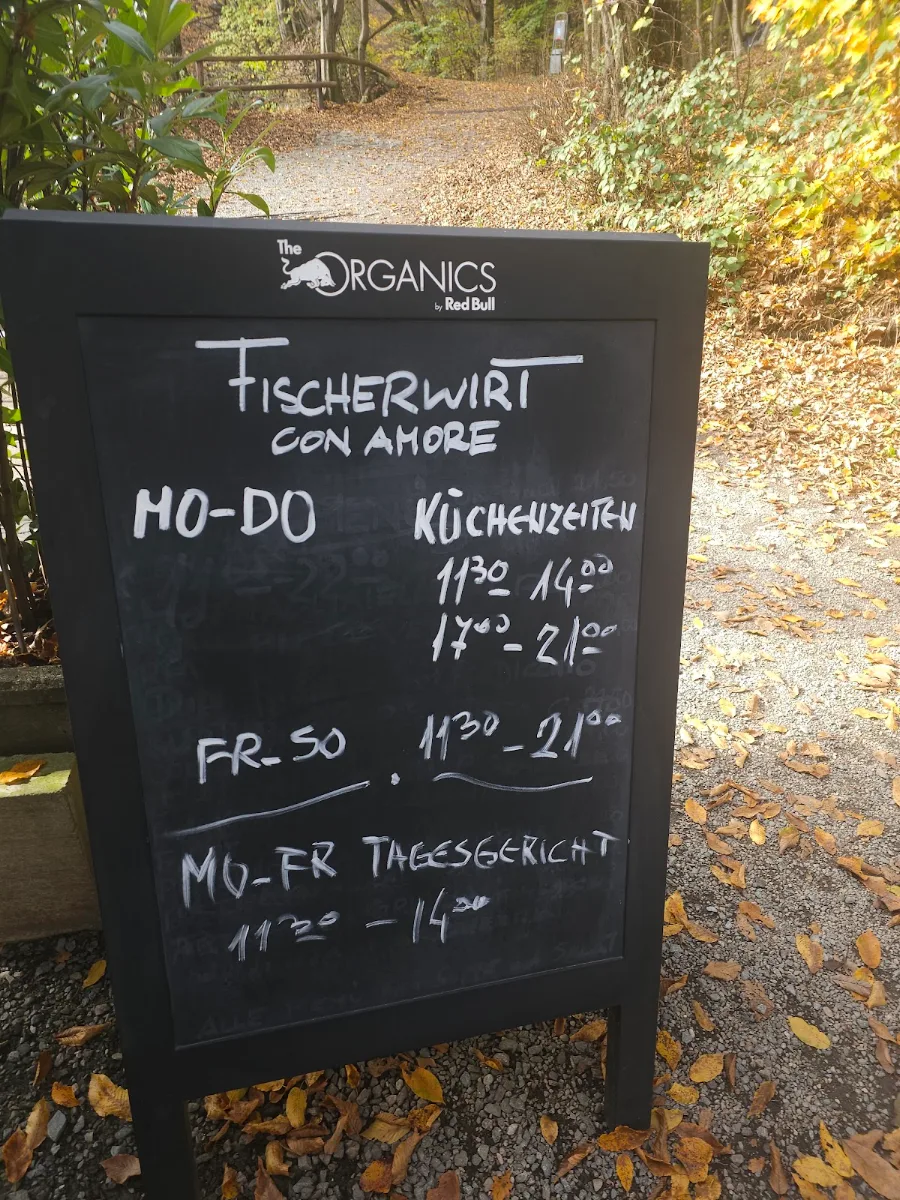 The
ORGANICS
by Red Bull
FISCHERWIRT
CON AMORE
MO-DO KÜCHENZEITEN
11³⁰ 14⁰⁰
17⁰⁰ - 21⁰⁰
FR-SO 11³⁰ - 21⁰⁰
MO-FR TAGESGERICHT
11³⁰ - 14⁰⁰